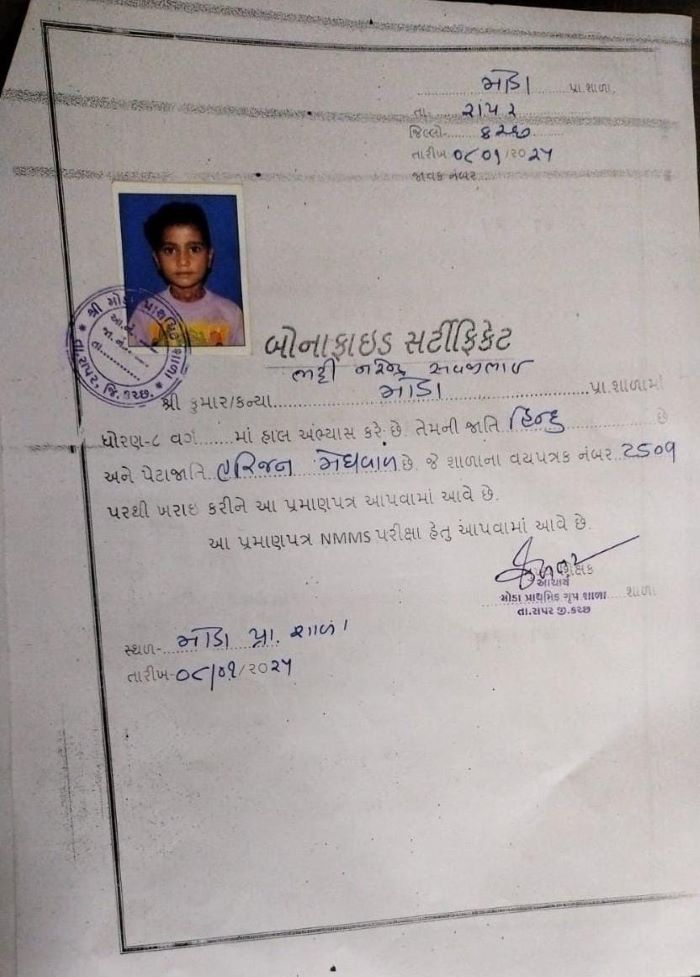 મોડા પ્રા.શાળા.
તા. રાપર
જિલ્લો- કચ્છ
તારીખ ૦૮ ૦૧/૨૦૨૫
જાવક નંબર
શ્રી મોડા પ્રાથમિક શાળા
આ.નં.
જા.નં.
તા.
તા.રાપર, જિ.કચ્છ.
બોનાફાઇડ સર્ટીફિકેટ
ભટ્ટી નરેન્દ્ર સવજીભાઈ
શ્રી કુમાર/કન્યા મોડા પ્રા.શાળામાં
ધોરણ-૮ વર્ગ માં હાલ અભ્યાસ કરે છે. તેમની જાતિ હિન્દુ છે
અને પેટાજાતિ હરિજન મેઘવાળ છે. જે શાળાના વયપત્રક નંબર ૨૬૦૧
પરથી ખરાઇ કરીને આ પ્રમાણપત્ર આપવામાં આવે છે.
આ પ્રમાણપત્ર NMMS પરીક્ષા હેતુ આપવામાં આવે છે.
આચાર્ય
મોડા પ્રાથમિક ગૃપ શાળા શાળા
તા.રાપર જી.કચ્છ
સ્થળ- મોડા પ્રા. શાળા
તારીખ- ૦૮/૦૧/૨૦૨૫